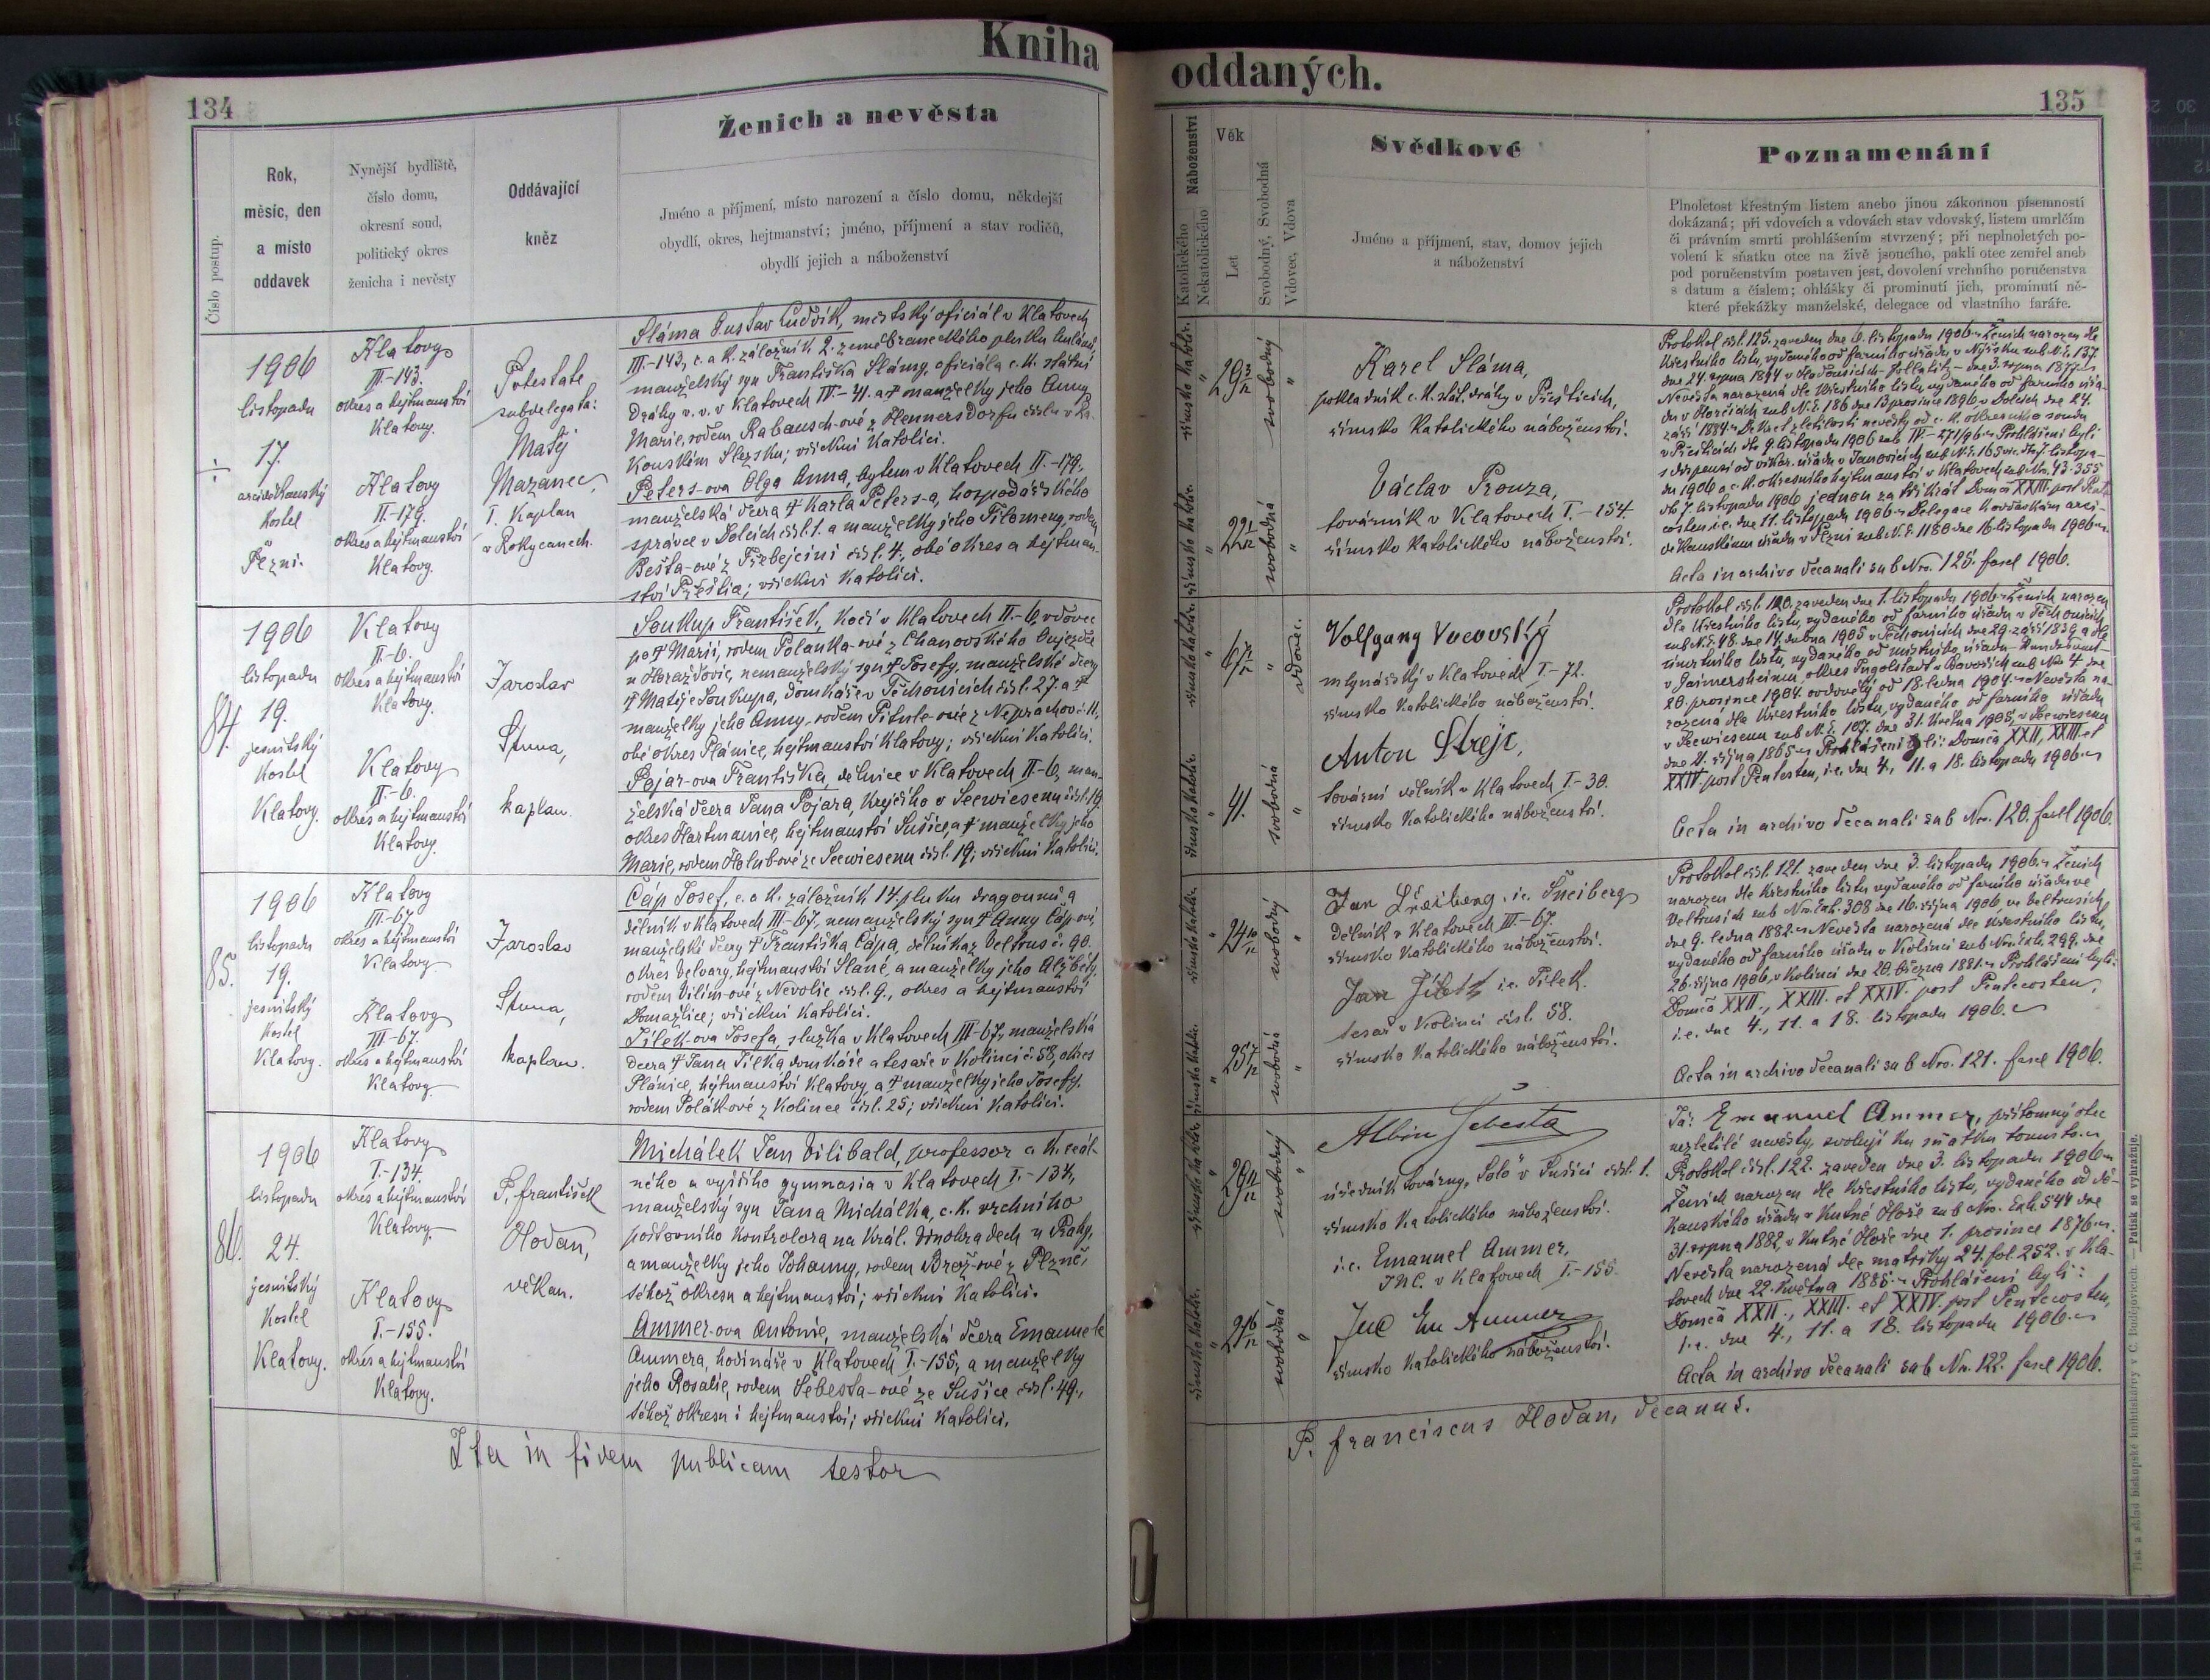 Kniha
134
Číslo postup.
Rok,
měsíc, den
a místo
oddavek
Nynější bydliště,
číslo domu,
okresní soud,
politický okres
ženicha i nevěsty
Oddávající
kněz
Ženich a nevěsta
Jméno a příjmení, místo narození a číslo domu, někdejší
obydlí, okres, hejtmanství; jméno, příjmení a stav rodičů,
obydlí jejich a náboženství
1906
listopadu
17.
arciděkanský
kostel
Plzni.
Klatovy
III.-143.
okres a hejtmanství
Klatovy.
Klatovy
II.-179.
okres a hejtmanství
Klatovy.
Potestate
subdelegata:
Matěj
Mazanec,
I. kaplan
v Rokycanech.
Sláma Gustav Ludvík, městský oficiál v Klatovech
III.-143, c. a k. záložník 2. zeměbraneckého pluku hulánů,
manželský syn Františka Slámy, oficiála c. k. státní
dráhy v. v. v Klatovech IV.-41. a † manželky jeho Anny
Marie, rodem Rabausch-ové z Hennersdorfu
Slezsku; všickni katolíci.
Peters-ova Olga Anna, bytem v Klatovech II.-179.,
manželská dcera † Karla Peters-a, hospodářského
správce v Dolcích čísl. 1. a manželky jeho Filomeny, rodem
Bešta-ové z Třebejciní čísl. 4., obé okres a hejtman-
ství Přeštic; všickni katolíci.
84.
1906
listopadu
19.
jesuitský
kostel
Klatovy.
Klatovy
II.-6.
okres a hejtmanství
Klatovy.
Klatovy
II.-6.
okres a hejtmanství
Klatovy.
Jaroslav
Sluna,
kaplan.
Soukup František, kočí v Klatovech II.-6, vdovec
po † Marii, rodem Polanka-ové z Chanovského Oujezda
u Horažďovic, nemanželský syn † Josefy, manželské dcery
† Matěje Soukupa, domkáře v Těchonicích čísl. 27. a †
manželky jeho Anny, rodem
obé okres Plánice, hejtmanství Klatovy; všickni katolíci.
Pojar-ova Františka, dělnice v Klatovech II.-6, man-
želská dcera Jana Pojara, krejčího v Seewiesenu čísl. 19.
okres Hartmanice, hejtmanství Sušice, a † manželky jeho
Marie, rodem Holub-ové ze Seewiesenu čísl. 19; všickni katolíci.
85.
1906
listopadu
19.
jesuitský
kostel
Klatovy.
Klatovy
III.-67.
okres a hejtmanství
Klatovy
Klatovy
III.-67.
okres a hejtmanství
Klatovy
Jaroslav
Sluna,
kaplan.
Čáp Josef, c. a k. záložník 14. pluku dragounů, a
dělník v Klatovech III.-67., nemanželský syn † Anny Čáp-ové,
manželské dcery † Františka Čápa, dělníka z Veltrus č. 90.
okres Velvary, hejtmanství Slané, a manželky jeho Alžběty,
rodem Vilím-ové z Nevolic čísl. 9., okres a hejtmanství
Domažlice; všickni katolíci.
Jílek-ova Josefa, služka v Klatovech III.-67., manželská
dcera † Jana Jílka, domkáře a tesaře v Kolinci č. 58, okres
Plánice, hejtmanství Klatovy, a † manželky jeho Josefy,
rodem Polák-ové z Kolince čísl. 25; všickni katolíci.
86.
1906
listopadu
24.
jesuitský
kostel
Klatovy.
Klatovy
I.-134.
okres a hejtmanství
Klatovy
Klatovy
I.-155.
okres a hejtmanství
Klatovy.
P. František
Hoďan,
děkan.
Michálek Jan Vilibald, professor c. k. reál-
ného a vyššího gymnasia v Klatovech I.-134,
manželský syn Jana Michálka, c. k. vrchního
poštovního kontrolora na Král. Vinohradech u Prahy,
a manželky jeho Johanny, rodem Brož-ové z Plzně,
téhož okresu a hejtmanství; všickni katolíci.
Ammer-ova Antonie, manželská dcera Emanuela
Ammera, hodináře v Klatovech I.-155, a manželky
jeho Rosalie, rodem Šebesta-ové ze Sušice čísl. 49.,
téhož okresu i hejtmanství; všickni katolíci.
Ita in fidem publicam testor
oddaných.
135
Náboženství
Katolického
Nekatolického
Věk
Let
Svobodný, Svobodná
Vdovec, Vdova
Svědkové
Jméno a příjmení, stav, domov jejich
a náboženství
Poznamenání
Plnoletost křestným listem anebo jinou zákonnou písemností
dokázaná; při vdovcích a vdovách stav vdovský, listem umrlčím
či právním smrti prohlášením stvrzený; při neplnoletých po-
volení k sňatku otce na živě jsoucího, pakli otec zemřel aneb
pod poručenstvím postaven jest, dovolení vrchního poručenstva
s datum a číslem; ohlášky či prominutí jich, prominutí ně-
které překážky manželské, delegace od vlastního faráře.
římsko katolic.
29 3/12
svobodný
římsko katolic.
22 1/12
svobodná
Karel Sláma,
pokladník c. k. stát. dráhy v Přešticích,
římsko katolického náboženství.
Václav Prouza,
továrník v Klatovech I.-154.
římsko katolického náboženství.
Protokol čísl. 125. zaveden dne 6. listopadu 1906. Ženich narozen dle
křestního listu, vydaného od farního úřadu v Nýrsku sub N. E. 137.
Nevěsta narozená dle křestního listu, vydaného od farního úřa-
du v Horčicích sub N. E. 186 dne 13 prosince 1896 v Dolcích dne 24.
září 1884. Dekret zletilosti nevěsty od c. k. okresního soudu
v Přešticích dto 9. listopadu 1906 sub IV-271/96. Prohlášení byli
s dispensí od vikar. úřadu v Janovicích sub N. E. 165 vic. dto 7. listopa-
du 1906 a c. k. okresního hejtmanství v Klatovech sub No. 43.355
dto 7. listopadu 1906 jednou za třikrát Domca XXIII. post Pent-
costen, i. e. dne 11. listopadu 1906. Delegace k oddavkám arci-
děkanskému úřadu v Plzni sub N. E. 1180 dne 16. listopadu 1906.
Acta in archivo decanali sub Nro. 125. fasc 1906.
římsko katolic.
67 2/12
vdovec.
římsko katolic.
41.
svobodná
Volfgang Vucovský
mlynářský v Klatovech I.-72.
římsko katolického náboženství.
Anton Strejc,
tovární dělník v Klatovech I.-30.
římsko katolického náboženství.
Protokol čísl. 120. zaveden dne 1. listopadu 1906. Ženich narozen
dle křestního listu, vydaného od farního úřadu v Těchonicích
sub N. E. 48. dne 14. dubna 1905 v Těchonicích dne 29. září 1839, a dle
úmrtního listu, vydaného od místního úřadu
v Gaimersheimu, okres Ingolstadt v Bavořích sub No. 4 dne
20. prosince 1904. ovdověl od 18. ledna 1904. Nevěsta na-
rozená dle křestního listu, vydaného od farního úřadu
v Seewiesenu sub N. E. 107. dne 31. května 1905, v Seewiesenu
dne 11. října 1865. Prohlášení byli: Domca XXII., XXIII. et
XXIV. post Pentcosten, i. e. dne 4., 11. a 18. listopadu 1906.
Acta in archivo decanali sub Nro. 120. fasc 1906.
římsko katolic.
24 10/12
svobodný
římsko katolic.
25 7/12
svobodná
i. e. Šneiberg
dělník v Klatovech III.-67.
římsko katolického náboženství.
Jan Jílek i. e. Jílek.
tesař v Kolinci čísl. 58.
římsko katolického náboženství.
Protokol čísl. 121. zaveden dne 3. listopadu 1906. Ženich
narozen dle křestního listu vydaného od farního úřadu ve
Veltrusích sub Nro. Exh. 308 dne 16. října 1906. ve Veltrusích
dne 9. ledna 1882. Nevěsta narozená dle křestního listu,
vydaného od farního úřadu v Kolinci sub Nro. Exh. 299. dne
26. října 1906, v Kolinci dne 20. března 1881. Prohlášení byli:
Domca XXII., XXIII. et XXIV. post Pentecosten,
i. e. dne 4., 11. a 18. listopadu 1906.
Acta in archivo decanali sub Nro. 121. fasc 1906.
římsko katolic.
29 11/12
svobodný
římsko katolic.
21 6/12
svobodná
Albin Šebesta
úředník továrny „Solo" v Sušici čísl. 1.
římsko katolického náboženství.
i. e. Emanuel Ammer,
INC. v Klatovech I.-155.
Inc Em Ammer
římsko katolického náboženství.
Já: Emanuel Ammer, přítomný otec
nezletilé nevěsty, svoluji ku sňatku tomuto.
Protokol čísl. 122. zaveden dne 3. listopadu 1906.
Ženich narozen dle křestního listu, vydaného od dě-
kanského úřadu v Kutné Hoře sub Nro. Exh. 544 dne
31. srpna 1882, v Kutné Hoře dne 1. prosince 1876.
Nevěsta narozená dle matriky 24. fol. 252. v Kla-
tovech dne 22. května 1885. Prohlášení byli:
Domca XXII., XXIII. et XXIV. post Pentecosten,
i. e. dne 4., 11. a 18. listopadu 1906.
Acta in archivo decanali sub Nro. 122. fasc 1906.
P. Franciscus Hoďan, decanus.
Tisk a sklad biskupské knihtiskárny v Č. Budějovicích. — Patisk se vyhražuje.